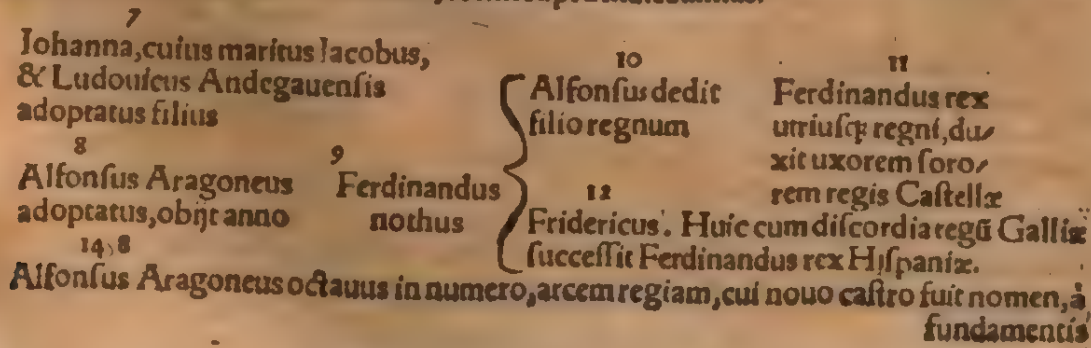 7
Iohanna, cuius maritus Iacobus,
& Ludouicus Andegauenſis
adoptatus filius
8
Alfonſus Aragoneus
adoptatus, obijt anno
14<58
9
Ferdinandus
nothus
10
Alfonſus dedit
filio regnum
11
Ferdinandus rex
utriuſq; regni, du-
xit uxorem ſoro-
rem regis Caſtellæ
12
Fridericus. Huic cum diſcordia regū Galliæ
ſucceſſit Ferdinandus rex Hiſpaniæ.
Alfonſus Aragoneus octauus in numero, arcem regiam, cui nouo caſtro fuit nomen, à
fundamentis